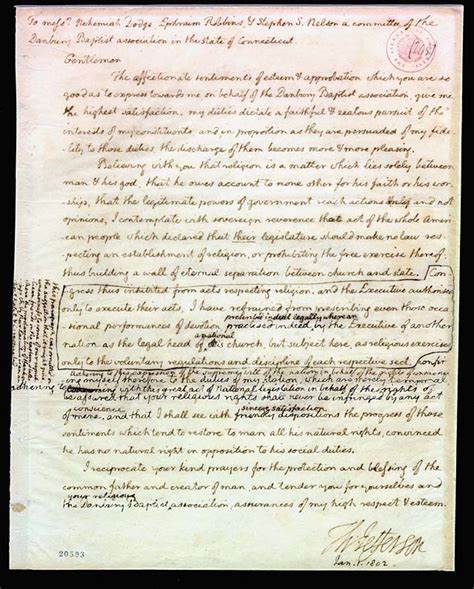 To mess.rs Nehemiah Dodge, Ephraim Robbins, & Stephen S. Nelson a committee of the
Danbury Baptist association in the state of Connecticut.
Gentlemen
The affectionate sentiments of esteem & approbation which you are so
good as to express towards me, on behalf of the Danbury Baptist association, give me
the highest satisfaction. my duties dictate a faithful & zealous pursuit of the
interests of my constituents, and in proportion as they are persuaded of my fide-
lity to those duties, the discharge of them becomes more & more pleasing.
Believing with you that religion is a matter which lies solely between
man & his god, that he owes account to none other for his faith or his wor-
ship, that the legitimate powers of government reach actions only and not
opinions, I contemplate with sovereign reverence that act of the whole Ameri-
can people which declared that their legislature should make no law res-
pecting an establishment of religion, or prohibiting the free exercise thereof,
thus building a wall of eternal separation between church and state. Con-
gress thus inhibited from acts respecting religion, and the Executive authorised
only to execute their acts, I have refrained from prescribing even those occa-
sional performances of devotion
prescribed indeed legally where an
practised indeed by the Executive of another
nation as the legal head of
a national
church, but subject here, as religious exercises
only to the voluntary regulations and discipline of each respective sect.
adhering to this expression of the supreme will of the nation in behalf of the rights of conscience
of man, and that I shall see with
sincere satisfaction
friendly dispositions the progress of those
sentiments which tend to restore to man all his natural rights, convinced
he has no natural right in opposition to his social duties.
I reciprocate your kind prayers for the protection and blessing of the
common father and creator of man, and tender you for yourselves and
your religious
the Danbury Baptist association, assurances of my high respect & esteem.
Th Jefferson
Jan. 1. 1802.
20593